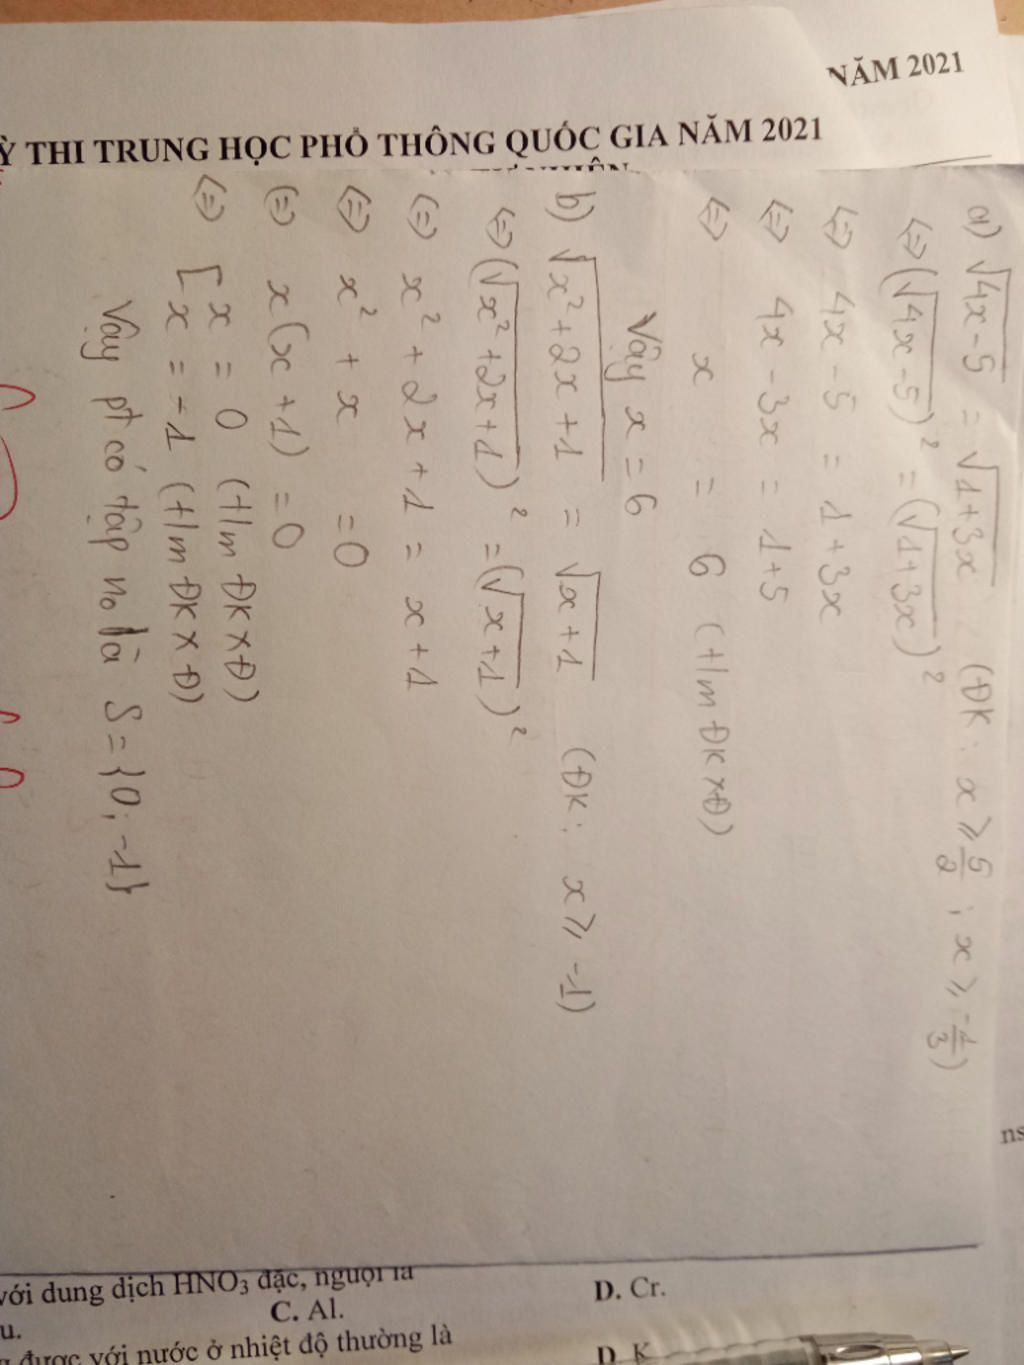 NĂM 2021
Ỳ THI TRUNG HỌC PHỔ THÔNG QUỐC GIA NĂM 2021
a) √(4x-5) = √(1+3x) (ĐK: x ≥ 5/2 ; x ≥ -1/3)
<=> (√(4x-5))² = (√(1+3x))²
<=> 4x - 5 = 1+3x
<=> 4x - 3x = 1+5
<=> x = 6 (t/m ĐKXĐ)
Vậy x = 6
b) √(x²+2x+1) = √(x+1) (ĐK: x ≥ -1)
<=> (√(x²+2x+1))² = (√(x+1))²
<=> x² + 2x + 1 = x+1
<=> x² + x = 0
<=> x(x+1) = 0
<=> [ x = 0 (t/m ĐKXĐ)
x = -1 (t/m ĐKXĐ)
Vậy pt có tập no là S = {0; -1}
ns
với dung dịch HNO₃ đặc, nguội là
C. Al.
D. Cr.
u.
được với nước ở nhiệt độ thường là
D. K